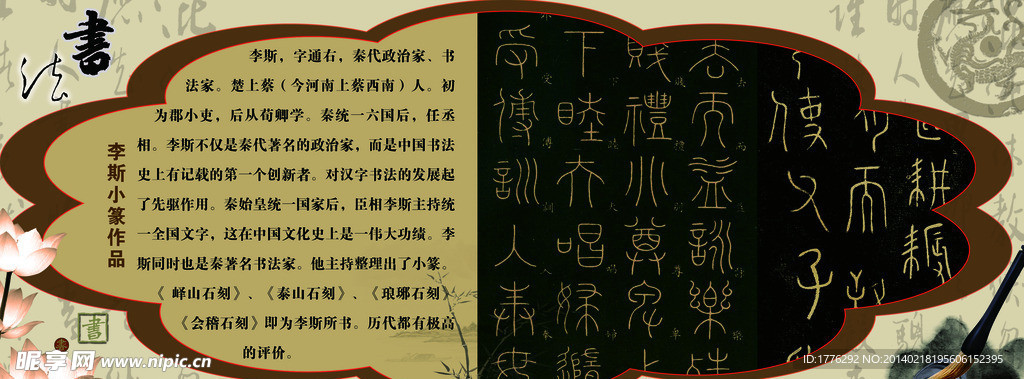 書法
李斯小篆作品
李斯，字通右，秦代政治家、书
法家。楚上蔡（今河南上蔡西南）人。初
为郡小吏，后从荀卿学。秦统一六国后，任丞
相。李斯不仅是秦代著名的政治家，而是中国书法
史上有记载的第一个创新者。对汉字书法的发展起
了先驱作用。秦始皇统一国家后，臣相李斯主持统
一全国文字，这在中国文化史上是一伟大功绩。李
斯同时也是秦著名书法家。他主持整理出了小篆。
《 峄山石刻》、《泰山石刻》、《琅琊石刻》
《会稽石刻》即为李斯所书。历代都有极高
的评价。
去而益詠樂殊
賤禮別尊卑上
下睦夫唱婦隨
受傅訓入奉母
書
昵享网 www.nipic.cn
ID:1776292 NO:20140218195606152395